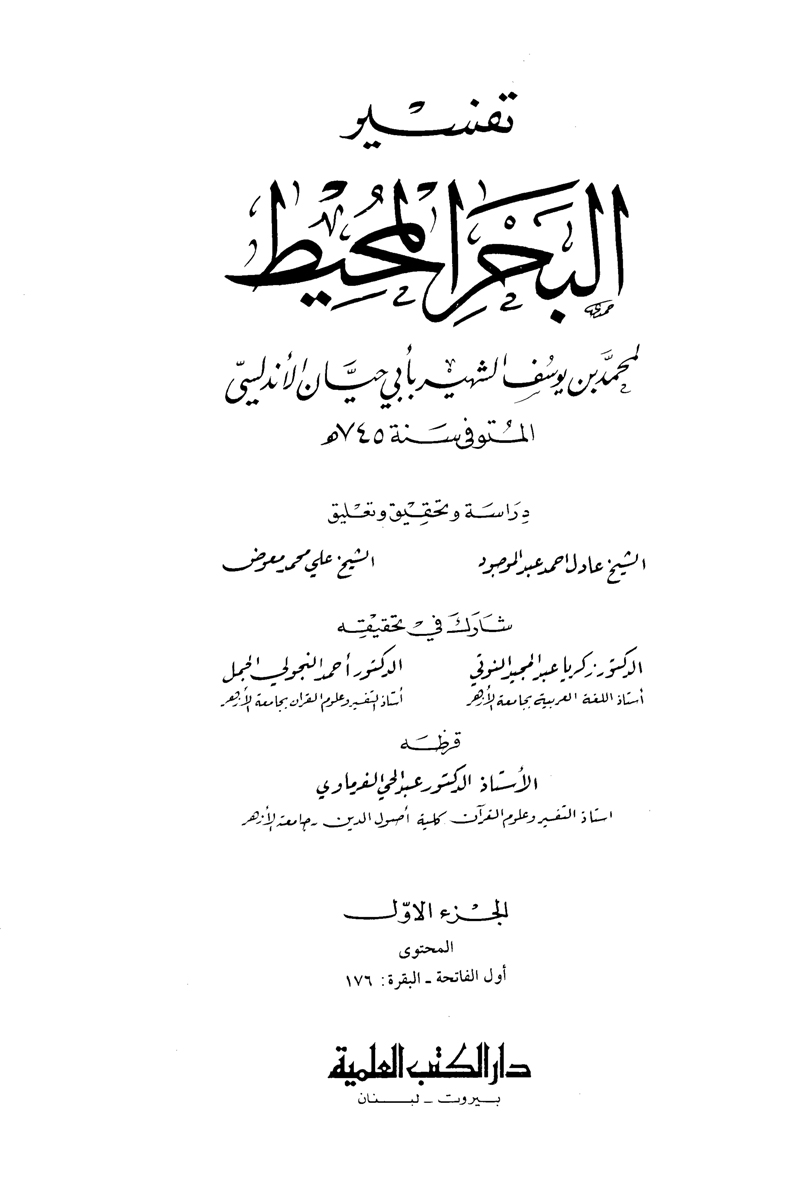 تفسير
البَحْر المُحِيط
لمحمد بن يوسُف الشهير بأبي حيَّان الأندلسيّ
المتُوفى سَنة ٧٤٥ه
دِرَاسَة وتحقِيق وتعْليق
الشيخ عادل احمد عبد الموجود    الشيخ علي محمد معوض
شَارَكَ في تحْقيقِه
الدكتور زكريا عبد المجيد النوتي    الدكتور أحمد النجولي الجمل
أستاذ اللغة العربية بجامعة الأزهر    أستاذ التفسير وعلوم القرآن بجامعة الأزهر
قرظَه
الأستاذ الدكتور عبد الحي الفرماوي
استاذ التفسير وعلوم القرآن كلية أصول الدين - جامعة الأزهر
الجْزء الاوّل
المحتوى
أول الفاتحة - البقرة: ١٧٦
دار الكتب العلمية
بيروت - لبنان